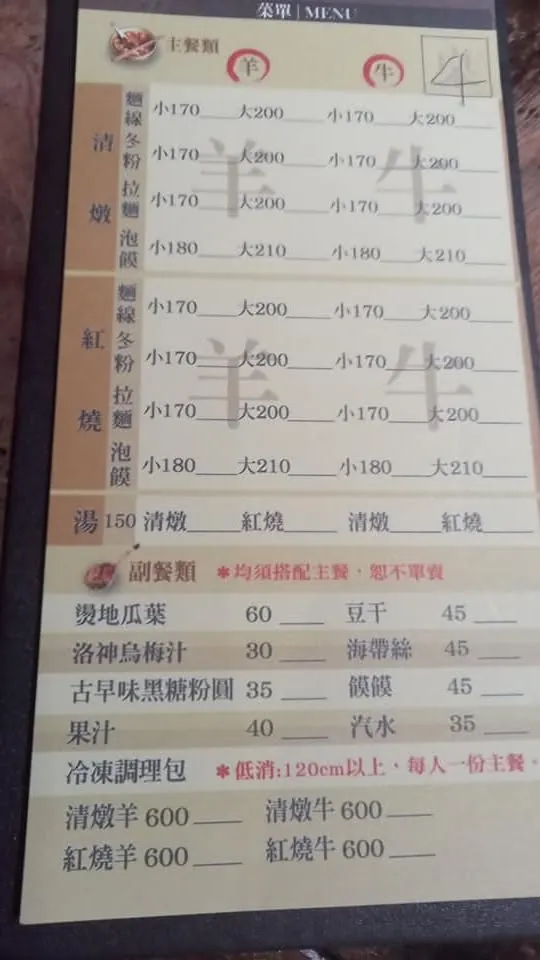 菜單 | MENU
主餐類 羊 牛 4
清燉
麵線 小170___大200____ 小170___大200____
冬粉 小170___大200____ 小170___大200____
拉麵 小170___大200____ 小170___大200____
泡饃 小180___大210____ 小180___大210____
羊 牛
紅燒
麵線 小170___大200____ 小170___大200____
冬粉 小170___大200____ 小170___大200____
拉麵 小170___大200____ 小170___大200____
泡饃 小180___大210____ 小180___大210____
羊 牛
湯150 清燉____ 紅燒____ 清燉____ 紅燒____
副餐類 *均須搭配主餐，恕不單賣
燙地瓜葉 60 ___ 豆干 45 ___
洛神烏梅汁 30 ___ 海帶絲 45 ___
古早味黑糖粉圓 35 ___ 饃饃 45 ___
果汁 40 ___ 汽水 35 ___
冷凍調理包 *低消:120cm以上，每人一份主餐。
清燉羊 600 ___ 清燉牛 600 ___
紅燒羊 600 ___ 紅燒牛 600 ___